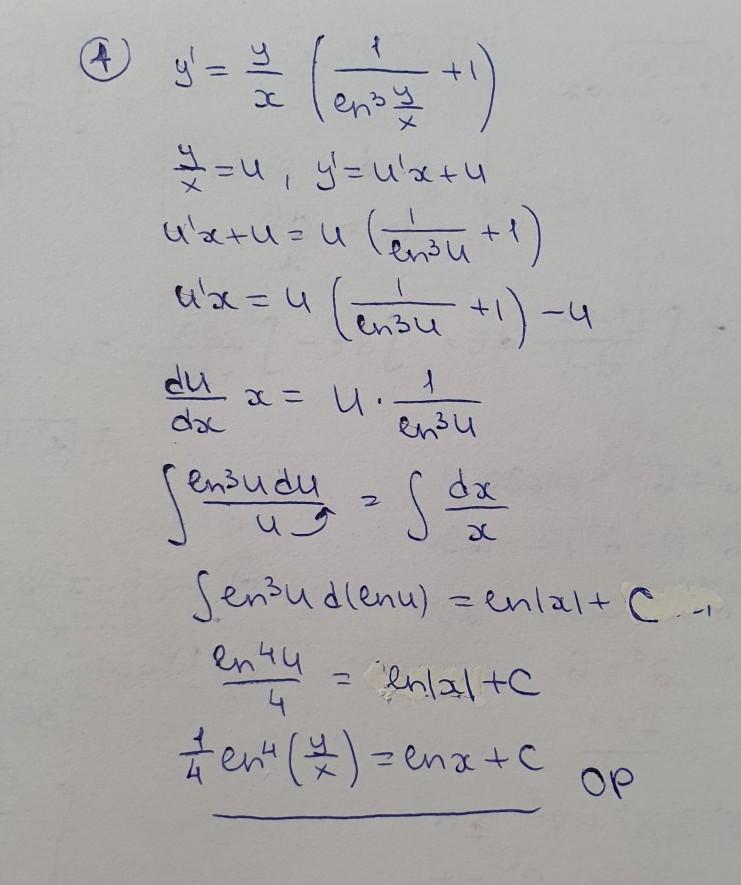 ④ y' = y/x (1/(ln³ y/x) + 1)
y/x = u, y' = u'x + u
u'x + u = u (1/(ln³u) + 1)
u'x = u (1/(ln³u) + 1) - u
du/dx x = u · 1/(ln³u)
∫ (ln³u du)/u = ∫ dx/x
∫ ln³u d(lnu) = ln|x| + C
ln⁴u/4 = ln|x| + C
1/4 ln⁴(y/x) = lnx + C OP